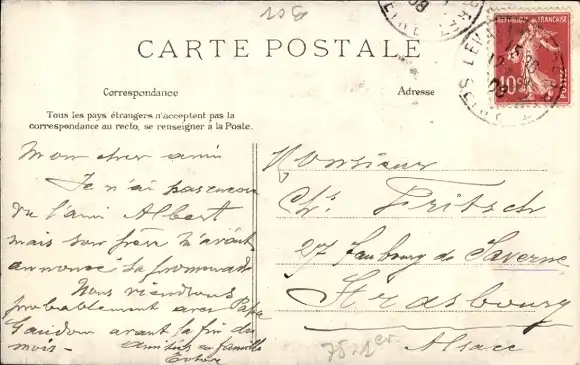 10 E
CARTE POSTALE
Correspondance
Adresse
Tous les pays étrangers n'acceptent pas la
correspondance au recto, se renseigner à la Poste.
REPUBLIQUE FRANÇAISE
10c
POSTES
Mon cher ami
Je n'ai pas encore
vu l'ami Albert
mais son frère m'avait
annoncé sa promenade
Nous viendrons
probablement avec Papa
Gaudon avant la fin du
mois -
Amitiés en famille
Monsieur
Ch. Fritsch
27 Faubourg de Saverne
Strasbourg
Alsace
75.1er